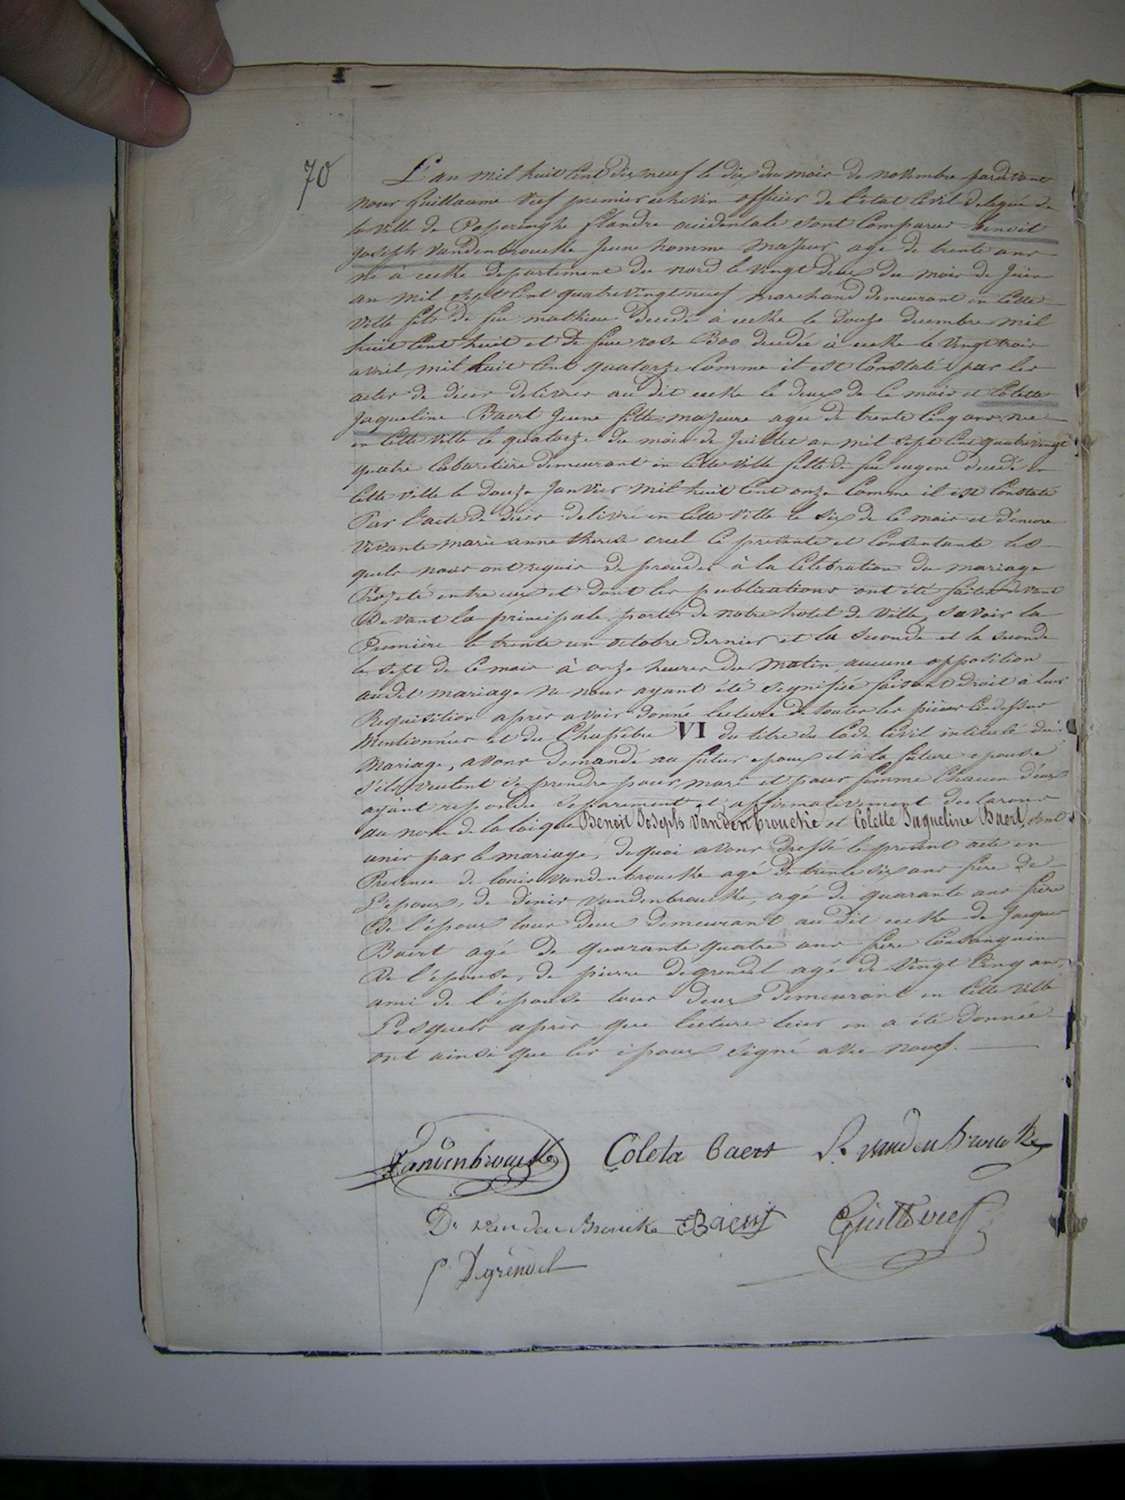 70
L'an mil huit cent dix neuf le dix du mois de novembre pardevant
nous Guillaume Veef premier echevin officier de l'état civil delegué de
la ville de Poperinghe flandre occidentale sont comparus Benoit
Joseph Vandenbroucke jeune homme majeur agé de trente ans
né à ecke departement du nord le vingt deux du mois de Juin
an mil sept cent quatre vingt neuf marchand demeurant en cette
ville fils de feu mathieu decedé à ecke le douze decembre mil
huit cent huit et de feue rose Boo decedée à ecke le vingt trois
avril mil huit cent quatorze comme il est constaté par les
actes de décès delivrés au dit ecke le deux de ce mois et Colette
Jaqueline Baert jeune fille majeure agée de trente cinq ans née
en cette ville le quatorze du mois de Juillet an mil sept cent quatre vingt
quatre cabaretière demeurant en cette ville fille de feu eugene decedé en
cette ville le douze Janvier mil huit cent onze comme il est constaté
Par l'acte de décès delivré en cette ville le six de ce mois et d'encore
vivante marie anne therese cruel ci presente et consentante les-
quels nous ont requis de proceder à la célébration du mariage
Projeté entre eux et dont les publications ont été faites devant
Devant la principale porte de notre hotel de ville, savoir la
Première le trente un octobre dernier et la seconde et la seconde
le sept de ce mois à onze heures du matin aucune opposition
audit mariage ne nous ayant été signifiée faisant droit à leur
Requisition après avoir donné lecture de toutes les pièces ci dessus
Mentionnées et du Chapitre VI du titre du Code Civil intitulé du
Mariage, avons demandé au futur epoux et à la future epouse
s'ils veulent se prendre pour mari et pour femme chacun d'eux
ayant repondu separement et affirmativement declarons
au nom de la loi que Benoit Joseph Vandenbroucke et Colette Jaqueline Baert, sont
unis par le mariage, de quoi avons dressé le present acte en
Presence de louis Vandenbroucke agé de trente six ans frère de
l'epoux, de dénis Vandenbroucke, agé de quarante ans frère
De l'époux tous deux demeurant au dit ecke de Jacques
Baert agé de quarante quatre ans frère consanguin
De l'épouse, de pierre degrendel agé de vingt cinq ans,
ami de l'épouse tous deux demeurant en cette ville
Lesquels après que lecture leur en a été donnée
ont ainsi que les epoux signé avec nous.
Vandenbroucke Coleta Baert L. vanden broucke
D. van den Broucke J Baert Guill Veef
P Degrendel